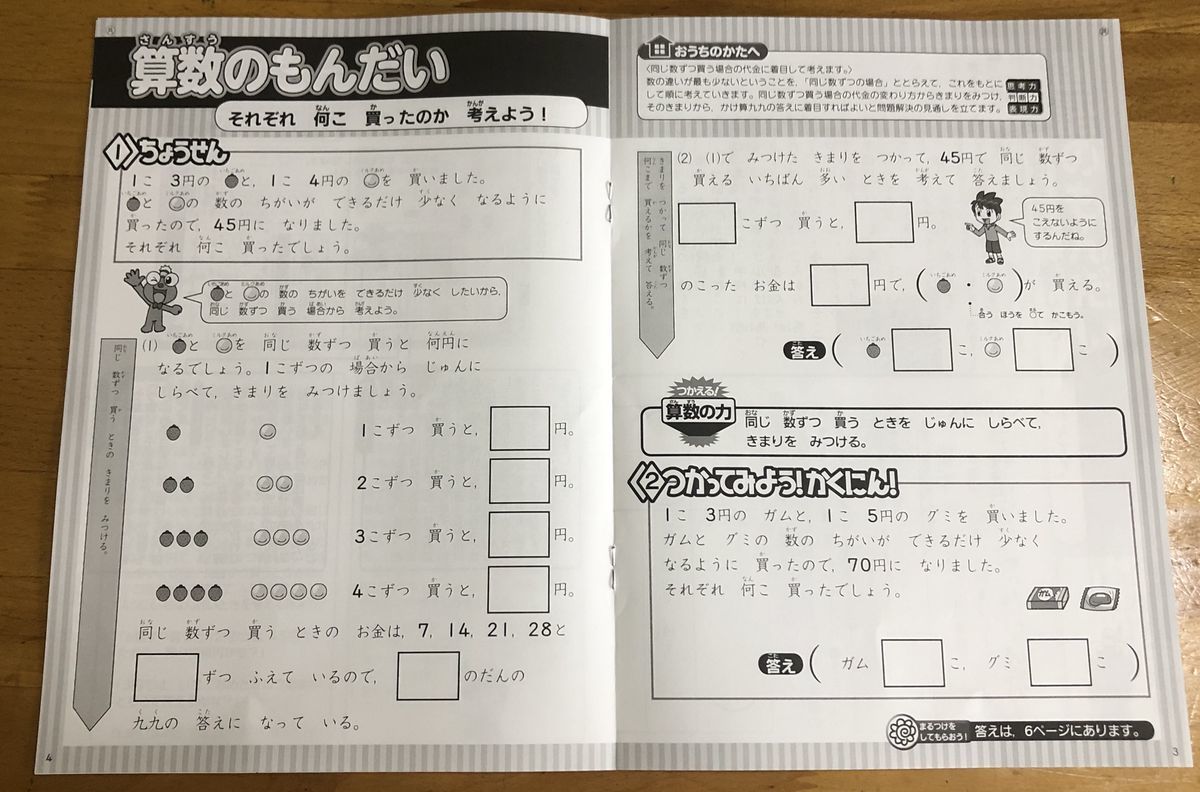 さんすう
算数のもんだい
それぞれ 何こ 買ったのか 考えよう!
1 ちょうせん
1こ 3円の いちごあめと, 1こ 4円の ミルクあめを 買いました。
いちごあめと ミルクあめの 数の ちがいが できるだけ 少なく なるように
買ったので, 45円に なりました。
それぞれ 何こ 買ったでしょう。
いちごあめと ミルクあめの 数の ちがいを できるだけ 少なく したいから,
同じ 数ずつ 買う 場合から 考えよう。
同じ 数ずつ 買う ときの きまりを みつける。
(1) いちごあめと ミルクあめを 同じ 数ずつ 買うと 何円に
なるでしょう。1こずつの 場合から じゅんに
しらべて, きまりを みつけましょう。
1こずつ 買うと, 円。
2こずつ 買うと, 円。
3こずつ 買うと, 円。
4こずつ 買うと, 円。
同じ 数ずつ 買う ときの お金は, 7, 14, 21, 28と
ずつ ふえて いるので, のだんの
九九の 答えに なって いる。
4
おうちのかたへ
〈同じ数ずつ買う場合の代金に着目して考えます。〉
数の違いが最も少ないということを,「同じ数ずつの場合」ととらえて, これをもとに
して順に考えていきます。同じ数ずつ買う場合の代金の変わり方からきまりをみつけ,
そのきまりから, かけ算九九の答えに着目すればよいと問題解決の見通しを立てます。
思考力
判断力
表現力
きまりを つかって 同じ 数ずつ
何こまで 買えるかを 考えて 答える。
(2) (1)で みつけた きまりを つかって, 45円で 同じ 数ずつ
買える いちばん 多い ときを 考えて 答えましょう。
こずつ 買うと, 円。
45円を
こえないように
するんだね。
のこった お金は 円で, ( いちごあめ ・ ミルクあめ )が 買える。
合う ほうを ○で かこもう。
答え ( いちごあめ こ, ミルクあめ こ )
つかえる!
算数の力
同じ 数ずつ 買う ときを じゅんに しらべて,
きまりを みつける。
2 つかってみよう!かくにん!
1こ 3円の ガムと, 1こ 5円の グミを 買いました。
ガムと グミの 数の ちがいが できるだけ 少なく
なるように 買ったので, 70円に なりました。
それぞれ 何こ 買ったでしょう。
ガム
答え ( ガム こ, グミ こ )
まるつけを
してもらおう!
答えは, 6ページにあります。
3